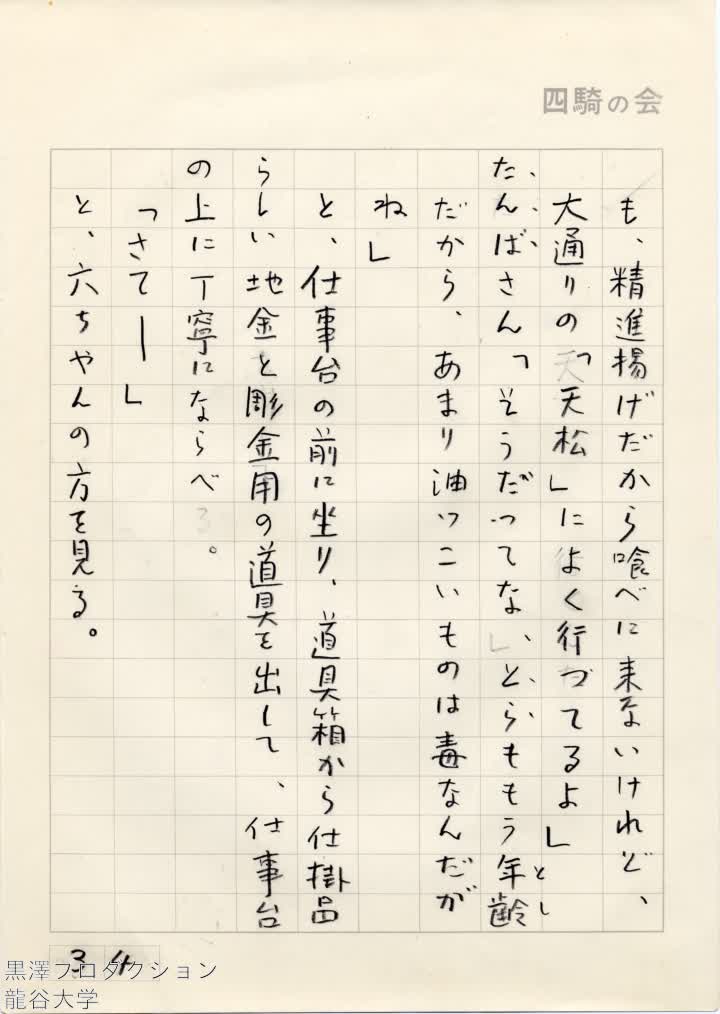 四騎の会
も、精進揚げだから喰べに来ないけれど、
大通りの「天松」によく行ってるよ」
たんばさん「そうだってな、とらももう年齢
とし
だから、あまり油っこいものは毒なんだが
ね」
と、仕事台の前に坐り、道具箱から仕掛品
らしい地金と彫金用の道具を出して、仕事台
の上に丁寧にならべる。
「さて―」
と、六ちゃんの方を見る。
34
黒澤プロダクション
龍谷大学